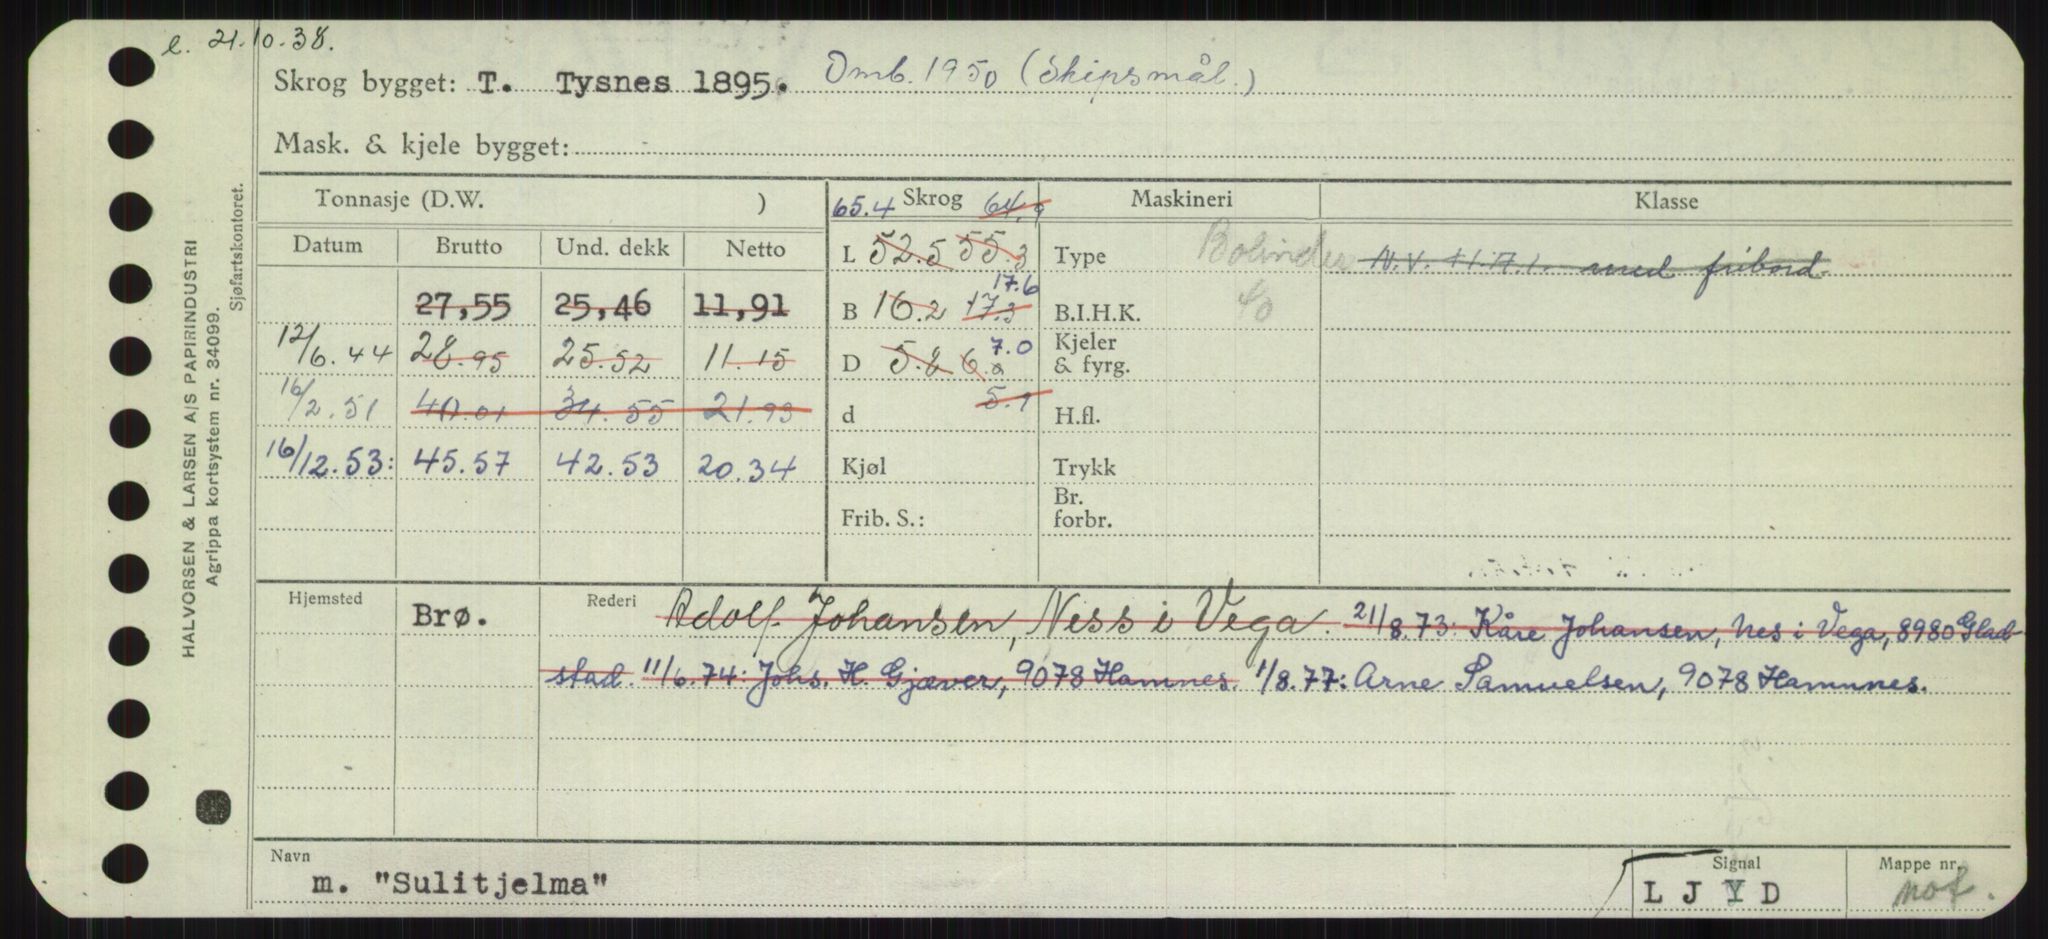 e. 21.10.38.
Skrog bygget: T. Tysnes 1895. Omb. 1950 (Skipsmål.)
Mask. & kjele bygget:
Tonnasje (D.W. ) 65.4 Skrog 64,9 Maskineri Klasse
Datum Brutto Und. dekk Netto L 52.5 55.3 Type Bolinder N.V. II.A.1. med fribord.
27,55 25,46 11,91 B 16.2 17.3 17.6 B.I.H.K. 40
12/6.44 28.95 25.52 11.15 D 5.8 6.2 7.0 Kjeler & fyrg.
16/2.51 40.01 34.55 21.93 d 5.9 H.fl.
16/12.53: 45.57 42.53 20.34 Kjøl Trykk
Frib. S.: Br. forbr.
Hjemsted Brø. Rederi Adolf Johansen, Ness i Vega. 21/8.73: Kåre Johansen, Nes i Vega, 8980 Glad-
stad. 11/6.74: Johs. H. Gjæver, 9078 Hamnes. 1/8.77: Arne Samuelsen, 9078 Hamnes.
Navn Signal Mappe nr.
m. "Sulitjelma" L J Y D not.
HALVORSEN & LARSEN A/S PAPIRINDUSTRI
Agrippa kortsystem nr. 34099.
Sjøfartskontoret.